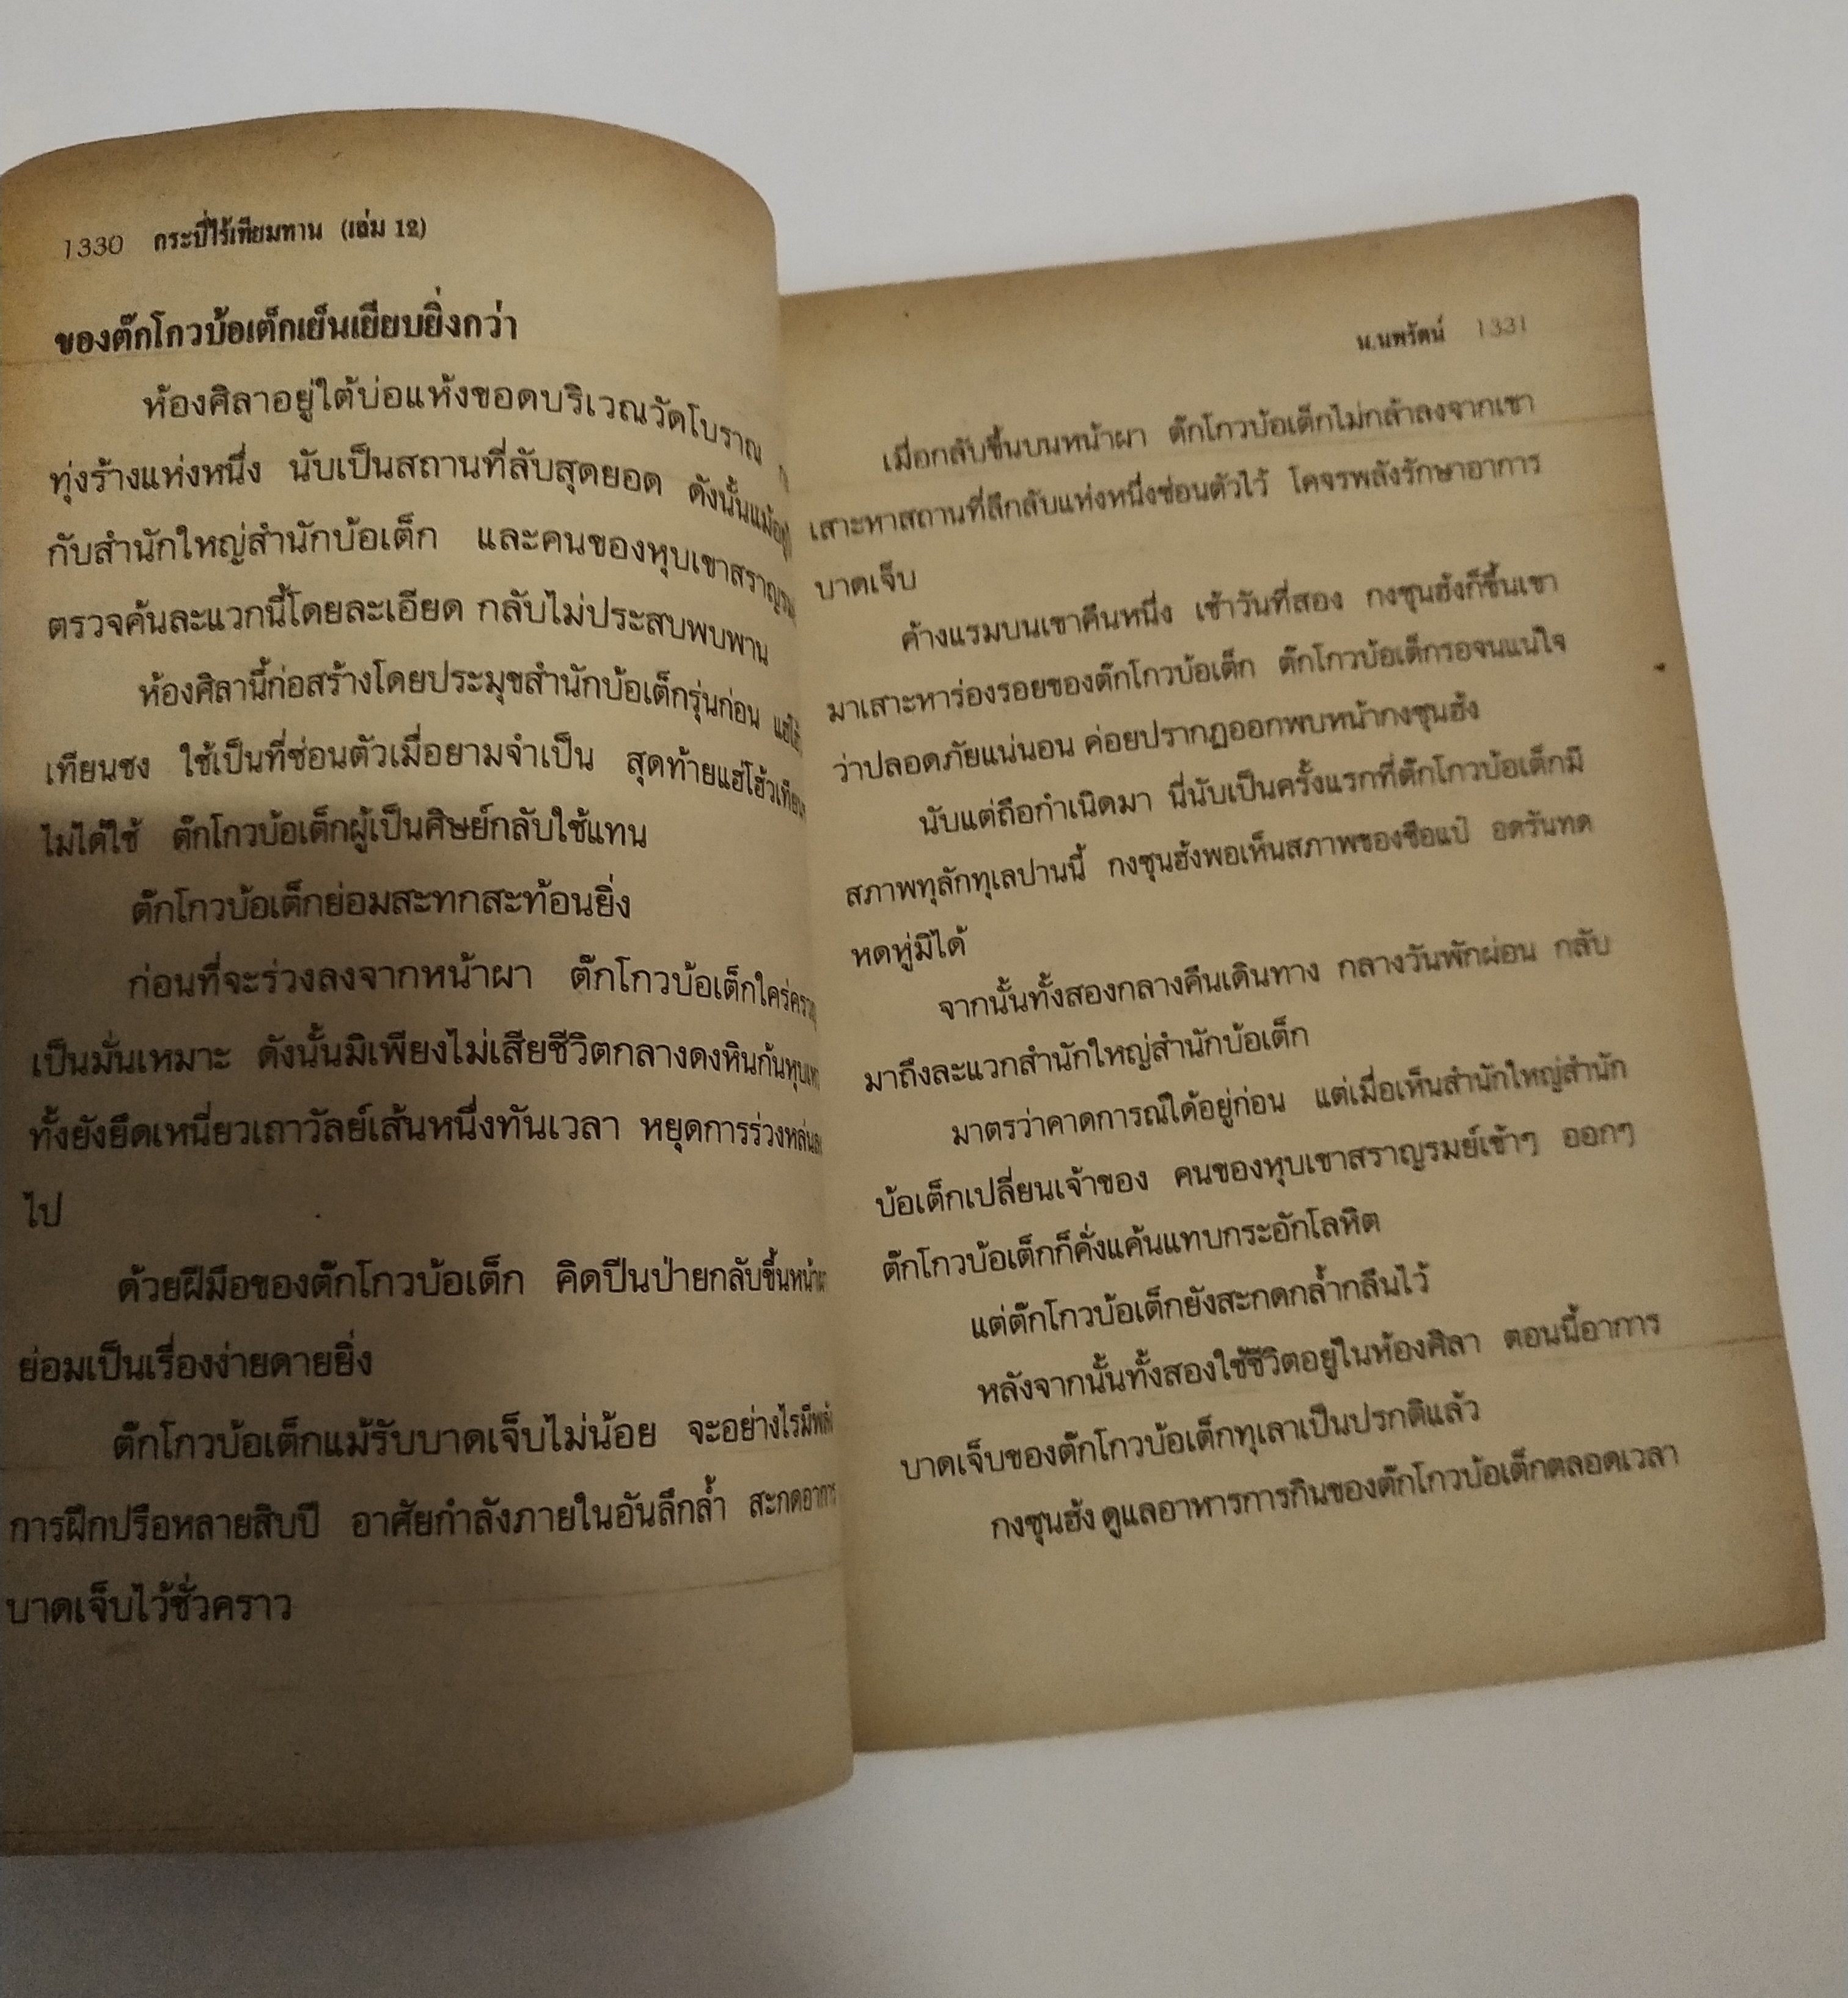 1330 กระบี่ไร้เทียมทาน (เล่ม 12)
ของต๊กโกวบ้อเต็กเย็นเยียบยิ่งกว่า
ห้องศิลาอยู่ใต้บ่อแห้งขอดบริเวณวัดโบราณ
ทุ่งร้างแห่งหนึ่ง นับเป็นสถานที่ลับสุดยอด ดังนั้นแม้อยู่
กับสำนักใหญ่สำนักบ้อเต็ก และคนของหุบเขาสราญรมย์
ตรวจค้นละแวกนี้โดยละเอียด กลับไม่ประสบพบพาน
ห้องศิลานี้ก่อสร้างโดยประมุขสำนักบ้อเต็กรุ่นก่อน
เทียนชง ใช้เป็นที่ซ่อนตัวเมื่อยามจำเป็น สุดท้ายแฮ่โฮ้วเทียนชง
ไม่ได้ใช้ ต๊กโกวบ้อเต็กผู้เป็นศิษย์กลับใช้แทน
ต๊กโกวบ้อเต็กย่อมสะทกสะท้อนยิ่ง
ก่อนที่จะร่วงลงจากหน้าผา ต๊กโกวบ้อเต็กใคร่ครวญ
เป็นมั่นเหมาะ ดังนั้นมิเพียงไม่เสียชีวิตกลางดงหินก้นหุบเหว
ทั้งยังยึดเหนี่ยวเถาวัลย์เส้นหนึ่งทันเวลา หยุดการร่วงหล่น
ไป
ด้วยฝีมือของต๊กโกวบ้อเต็ก คิดปีนป่ายกลับขึ้นหน้าผา
ย่อมเป็นเรื่องง่ายดายยิ่ง
ต๊กโกวบ้อเต็กแม้รับบาดเจ็บไม่น้อย จะอย่างไรมีพลัง
การฝึกปรือหลายสิบปี อาศัยกำลังภายในอันลึกล้ำ สะกดอาการ
บาดเจ็บไว้ชั่วคราว
น.นพรัตน์ 1331
เมื่อกลับขึ้นบนหน้าผา ต๊กโกวบ้อเต็กไม่กล้าลงจากเขา
เสาะหาสถานที่ลึกลับแห่งหนึ่งซ่อนตัวไว้ โคจรพลังรักษาอาการ
บาดเจ็บ
ค้างแรมบนเขาคืนหนึ่ง เช้าวันที่สอง กงซุนฮั้งก็ขึ้นเขา
มาเสาะหาร่องรอยของต๊กโกวบ้อเต็ก ต๊กโกวบ้อเต็กรอจนแน่ใจ
ว่าปลอดภัยแน่นอน ค่อยปรากฏออกพบหน้ากงซุนฮั้ง
นับแต่ถือกำเนิดมา นี่นับเป็นครั้งแรกที่ต๊กโกวบ้อเต็กมี
สภาพทุลักทุเลปานนี้ กงซุนฮั้งพอเห็นสภาพของซือแป๋ อดรันทด
หดหู่มิได้
จากนั้นทั้งสองกลางคืนเดินทาง กลางวันพักผ่อน กลับ
มาถึงละแวกสำนักใหญ่สำนักบ้อเต็ก
มาตรว่าคาดการณ์ได้อยู่ก่อน แต่เมื่อเห็นสำนักใหญ่สำนัก
บ้อเต็กเปลี่ยนเจ้าของ คนของหุบเขาสราญรมย์เข้าๆ ออกๆ
ต๊กโกวบ้อเต็กก็คั่งแค้นแทบกระอักโลหิต
แต่ต๊กโกวบ้อเต็กยังสะกดกล้ำกลืนไว้
หลังจากนั้นทั้งสองใช้ชีวิตอยู่ในห้องศิลา ตอนนี้อาการ
บาดเจ็บของต๊กโกวบ้อเต็กทุเลาเป็นปรกติแล้ว
กงซุนฮั้ง ดูแลอาหารการกินของต๊กโกวบ้อเต็กตลอดเวลา